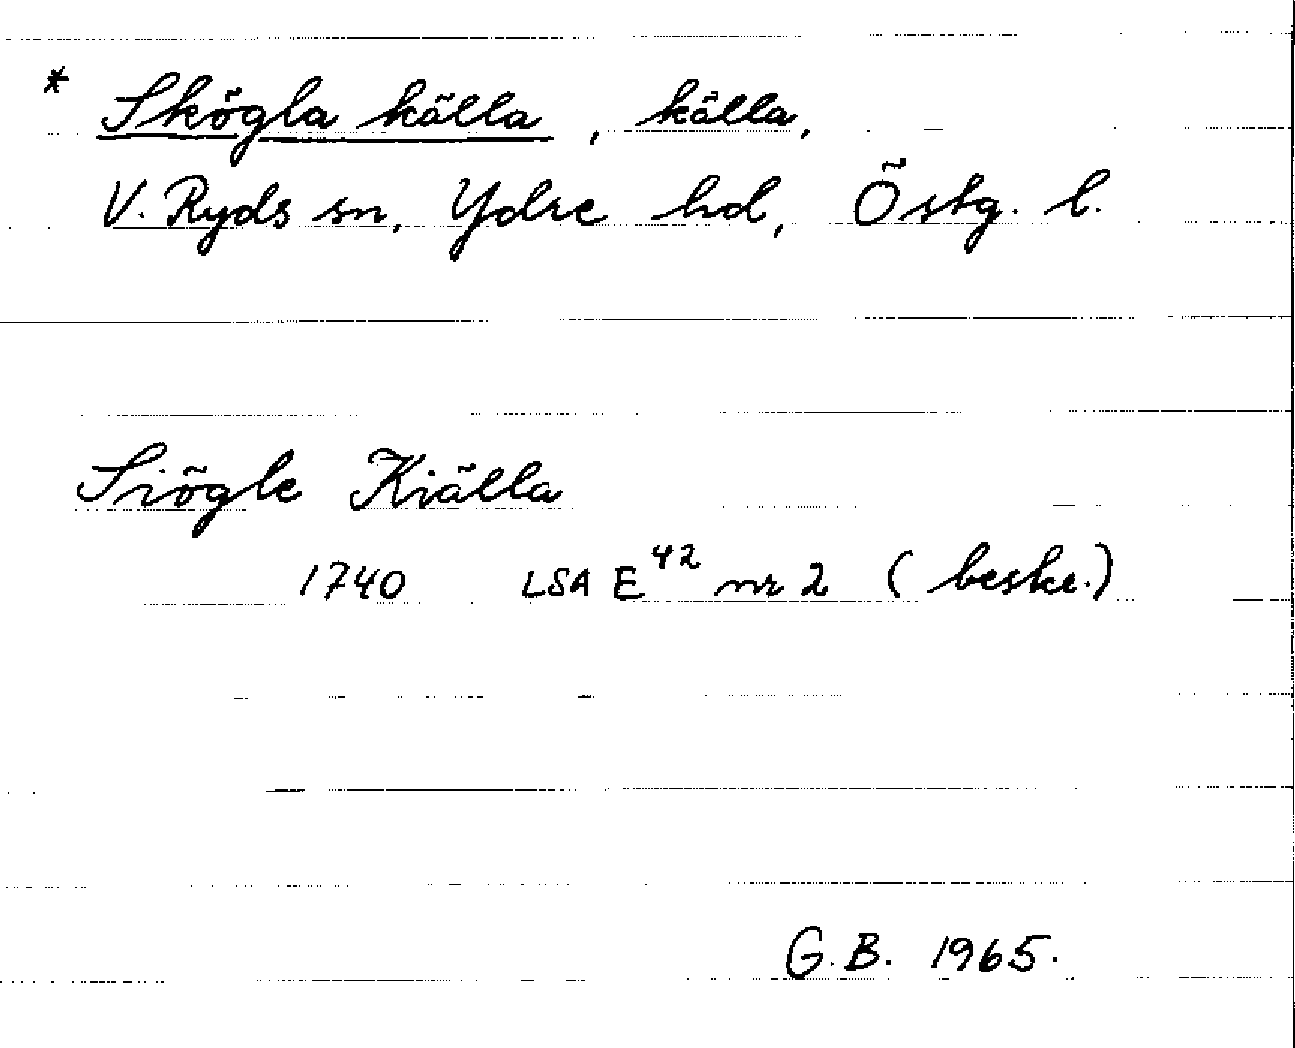 * Skögla källa, källa,
V. Ryds sn, Ydre hd, Östg. l.
Siögle Kiälla
1740 LSA E⁴² nr 2 (beskr.)
G.B. 1965.